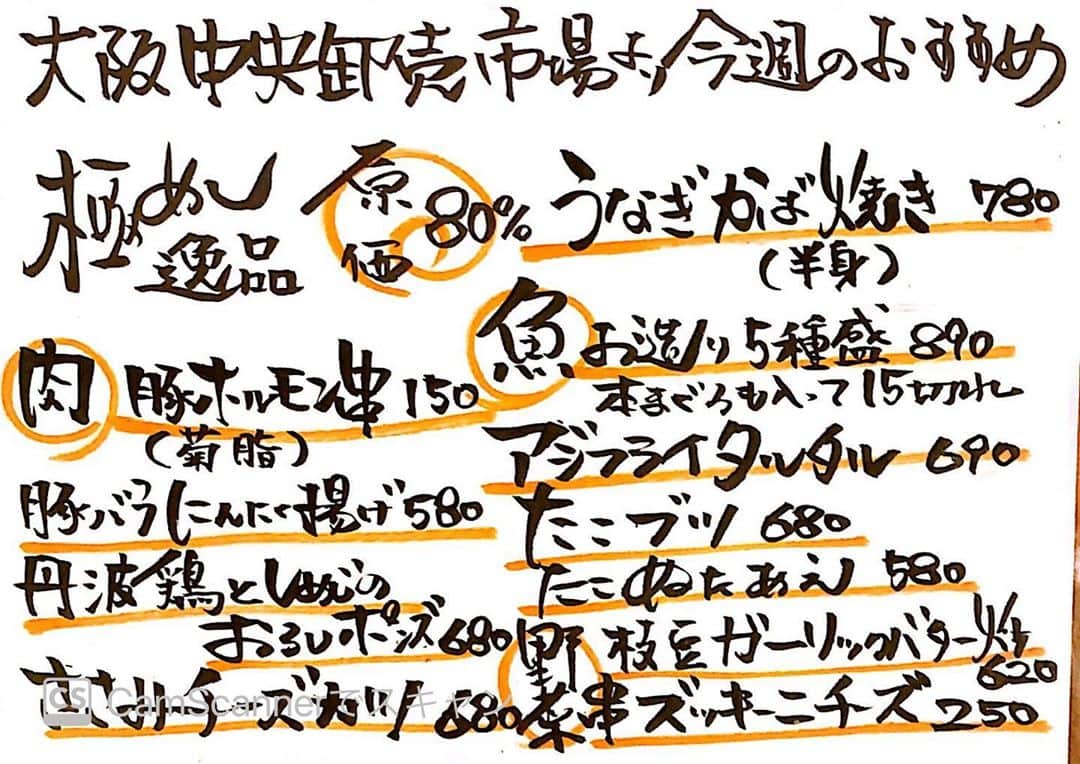 大阪中央卸売市場より今週のおすすめ
極めし逸品
原価80%
うなぎかば焼き 780
(半身)
魚
お造り5種盛 890
本まぐろも入って15切れ
アジフライタルタル 690
たこブツ 680
たこぬたあえ 580
肉
豚ホルモン串 150
(菊脂)
豚バラにんにく揚げ 580
丹波鶏としめじの
おろしポンズ 680
チーズカツ 680
野菜
枝豆ガーリックバター焼 620
串ズッキーニチーズ 250
CS CamScannerでスキャン